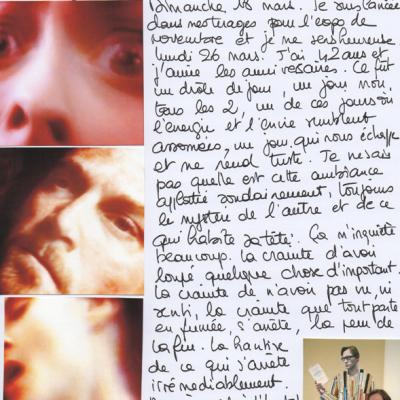 Dimanche 18 mars. Je suis lancée
dans mes tirages pour l'expo de
novembre et je me sens heureuse.
lundi 26 mars. J'ai 42 ans et
j'aime les anniversaires. Ce fut
un drôle de jour, un jour noir,
tous les 2, un de ces jours où
l'énergie et l'envie semblent
assommées, un jour qui nous échappe
et me rend triste. Je ne sais
pas quelle est cette ambiance
aplatie soudainement, toujours
le mystère de l'autre et de ce
qui habite sa tête. Ça m'inquiète
beaucoup. la crainte d'avoir
loupé quelque chose d'important.
la crainte de n'avoir pas vu, ni
senti, la crainte que tout parte
en fumée, s'arrête, la peur de
la fin. la hantise
de ce qui s'arrête
irrémédiablement.